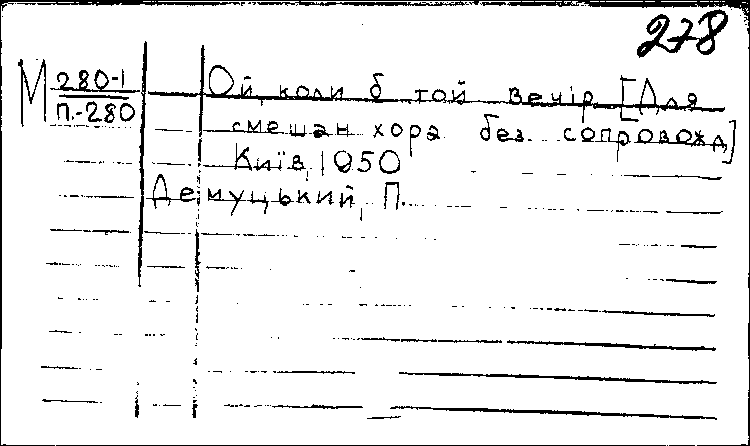 278
М 280-1 Ой, коли б той вечір [Для
П.-280 смешан хора без сопровожд]
Київ, 1950
Демуцький, П.